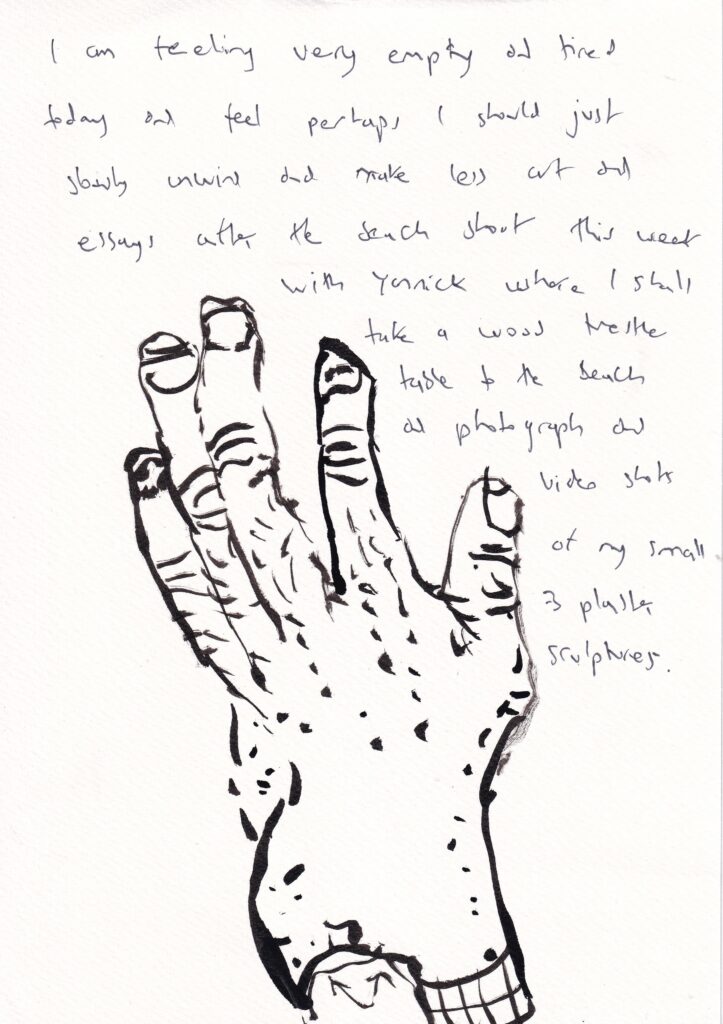 I am feeling very empty and tired
today and feel perhaps I should just
slowly unwind and make less art and
essays after the beach shoot this week
with Yannick where I shall
take a wood trestle
table to the beach
and photograph and
video shots
of my small
3 plaster
sculptures.